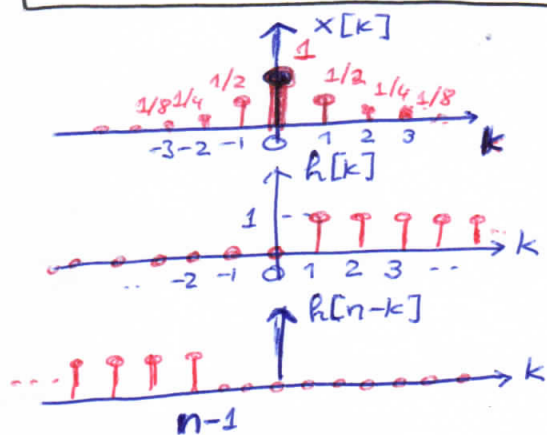 x[k]
1
1/8 1/4 1/2 1/2 1/4 1/8
-3 -2 -1 0 1 2 3 k
h[k]
1
.. -2 -1 0 1 2 3 .. k
h[n-k]
k
n-1